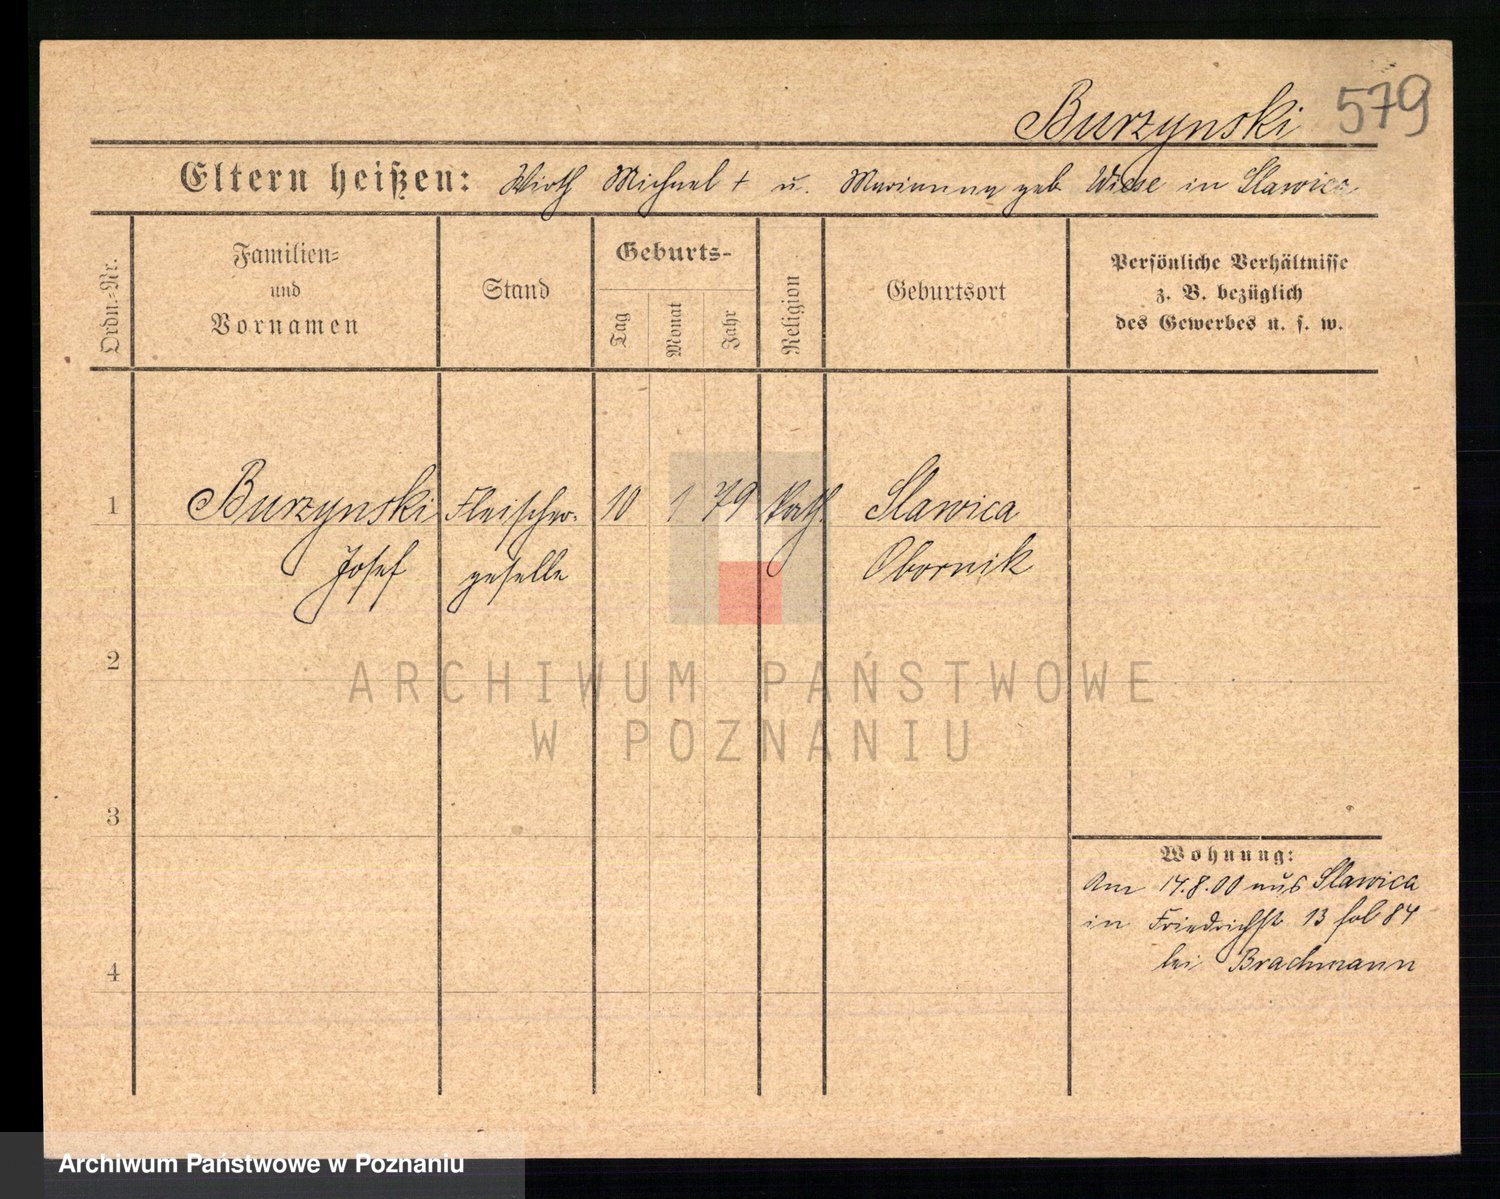 Burzynski 579
Eltern heißen: Wirth Michael + u. Marianna geb Wiese in Slawica
Ordn.-Nr.
Familien-
und
Vornamen
Stand
Geburts-
Tag
Monat
Jahr
Religion
Geburtsort
Persönliche Verhältnisse
z. B. bezüglich
des Gewerbes u. s. w.
1 Burzynski Fleischer- 10 1 79 kath. Slawica
Josef geselle Obornik
2
ARCHIWUM PAŃSTWOWE
W POZNANIU
3
Wohnung:
Am 17.8.00 aus Slawica
in Friedrichstr 13 fol 84
bei Brachmann
4
Archiwum Państwowe w Poznaniu